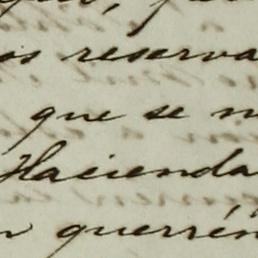 os reserva
que se n
Hacienda
n querrén